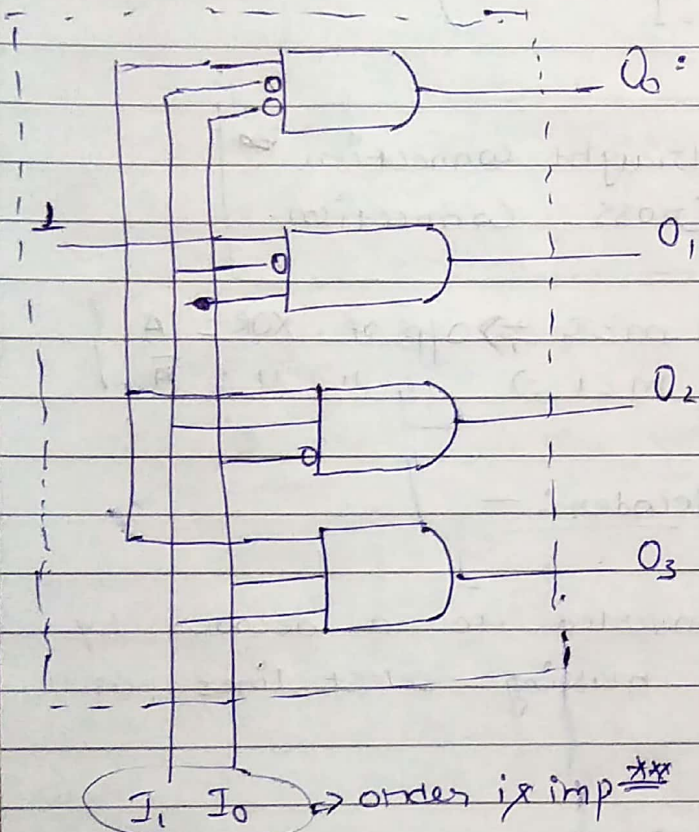 O₀
1
O₁
O₂
O₃
I₁ I₀ => order is imp ***